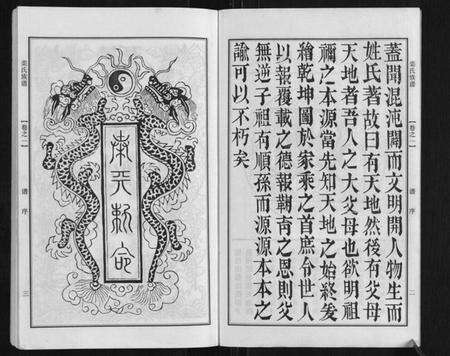 蓋聞混沌開而文明開人物生而
姓氏著故曰有天地然後有父母
天地者吾人之大父母也欲明祖
禰之本源當先知天地之始終爰
繪乾坤圖於家乘之首庶令世人
以報覆載之德報鞠育之恩則父
無逆子祖有順孫而源源本本之
諭可以不朽矣
二
譜序
卷之一
奉天勅命
氏族譜
卷之一
譜序
三